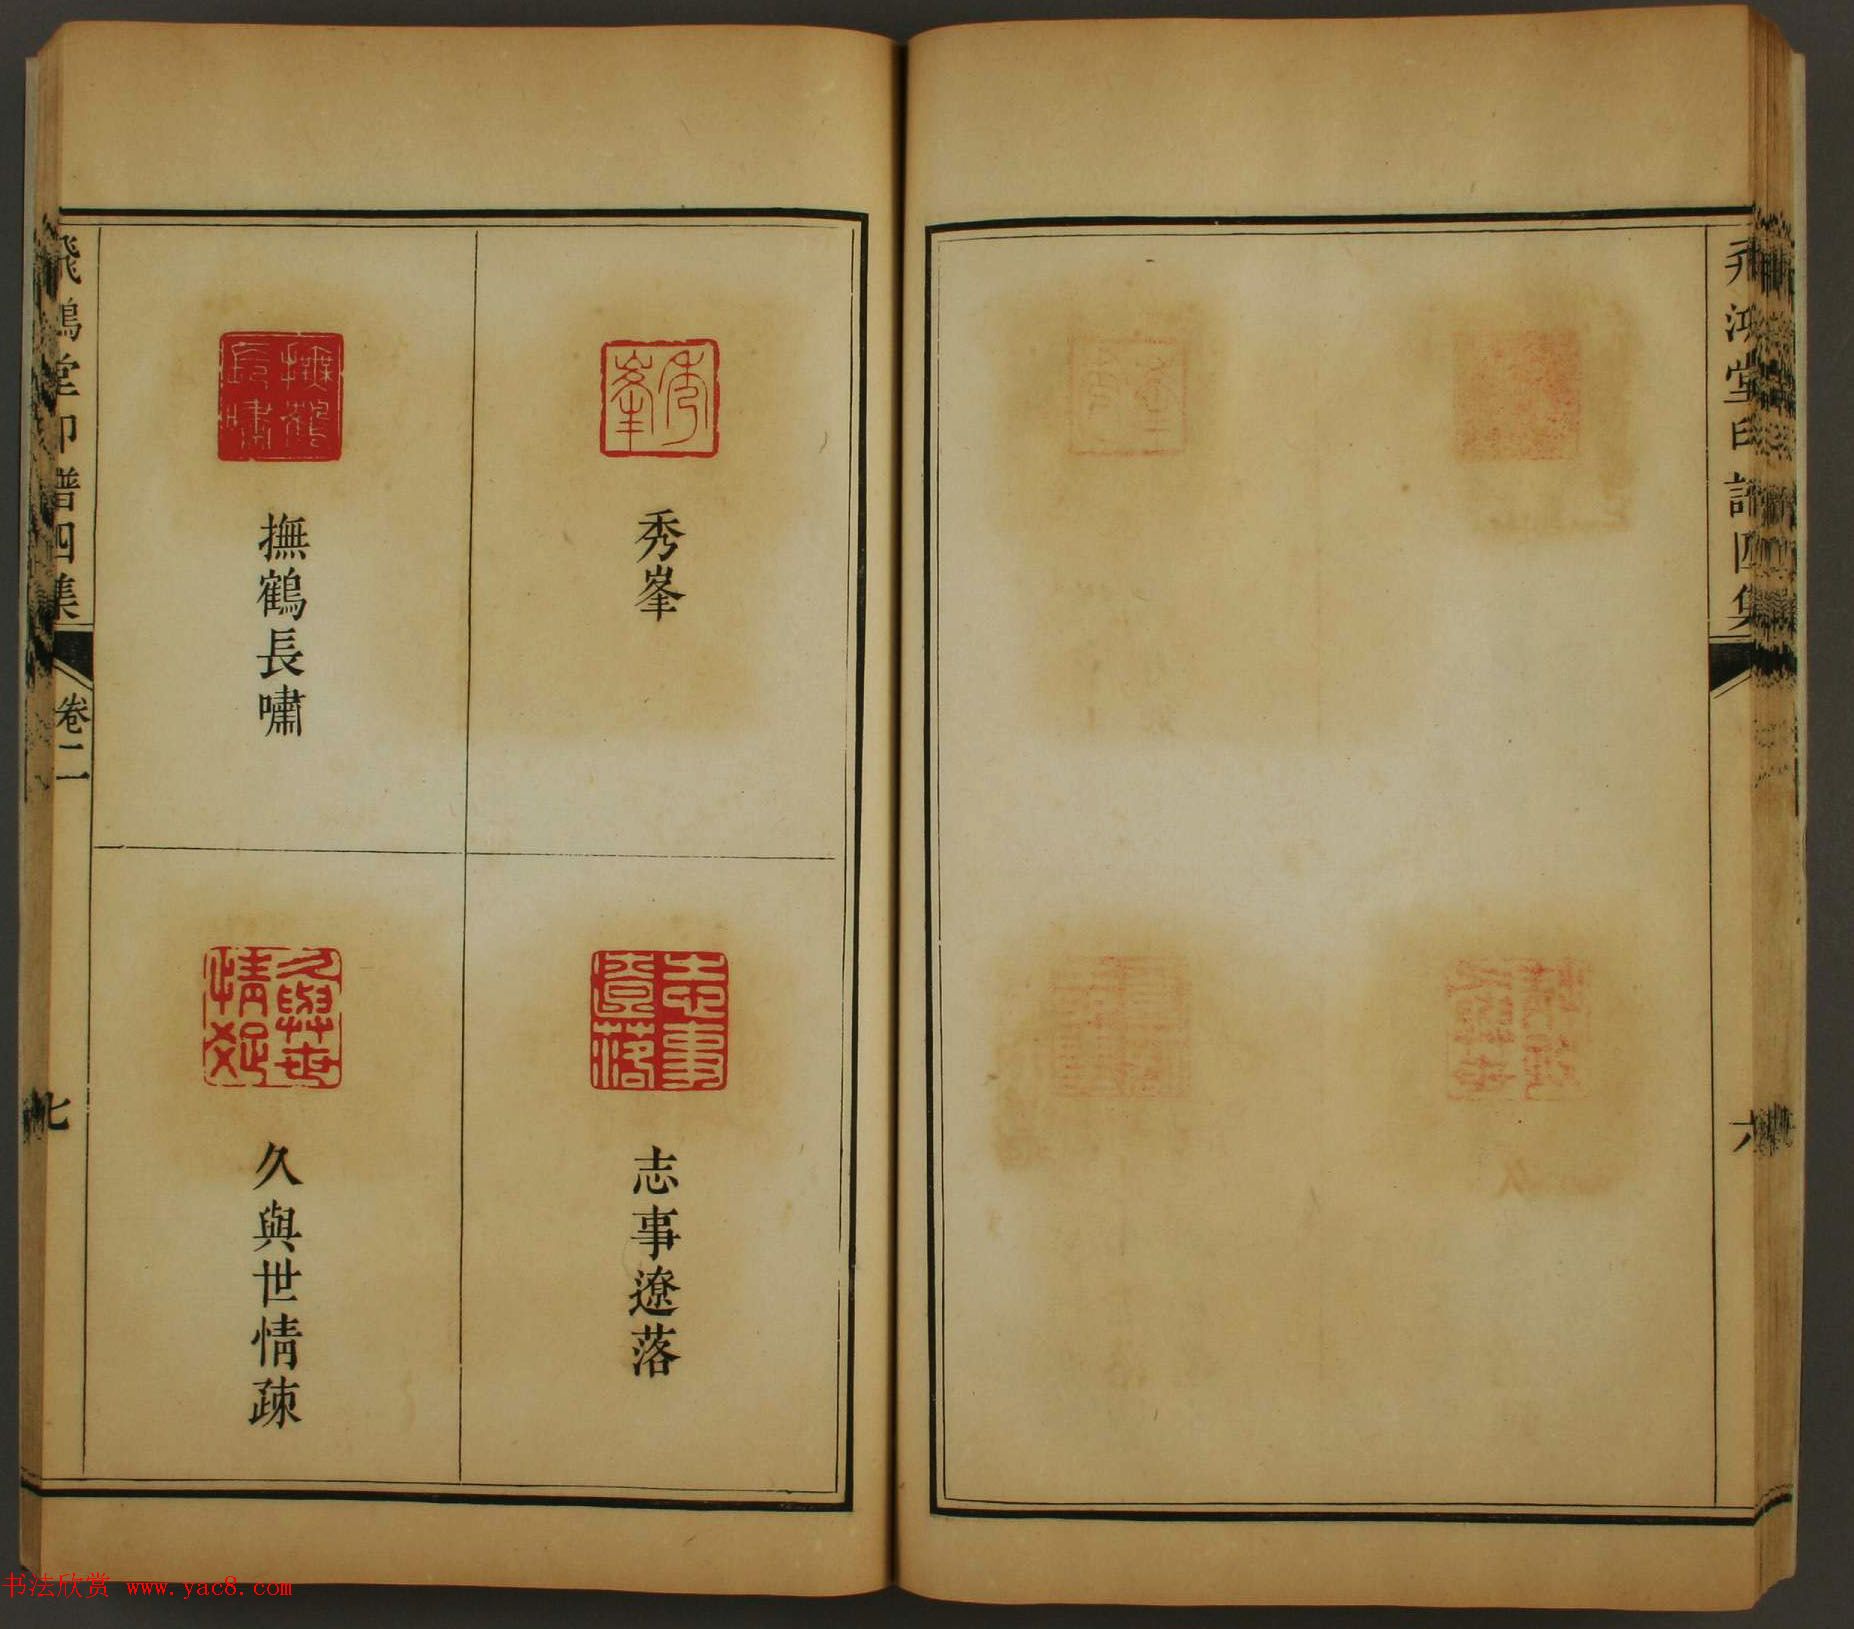 飛鴻堂印譜四集
六
秀峯
秀峯
志事遼落
志事遼落
撫鶴長嘯
撫鶴長嘯
久與世情疎
久與世情疎
飛鴻堂印譜四集
卷二
七
书法欣赏 www.yac8.com